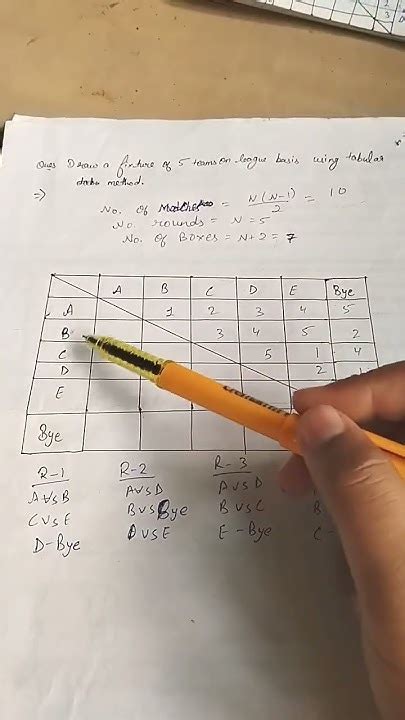 Ques Draw a fixture of 5 teams on league basis using tabular
method.
⇒ No. of Matches = N(N-1)/2 = 10
No. rounds = N = 5
No. of Boxes = N+2 = 7
A B C D E Bye
A 1 2 3 4 5
B 3 4 5 2
C 5 1 4
D 2
E
Bye
R-1 R-2 R-3
A vs B A vs D A vs D
C vs E B vs Bye B vs C
D-Bye D vs E E-Bye C-